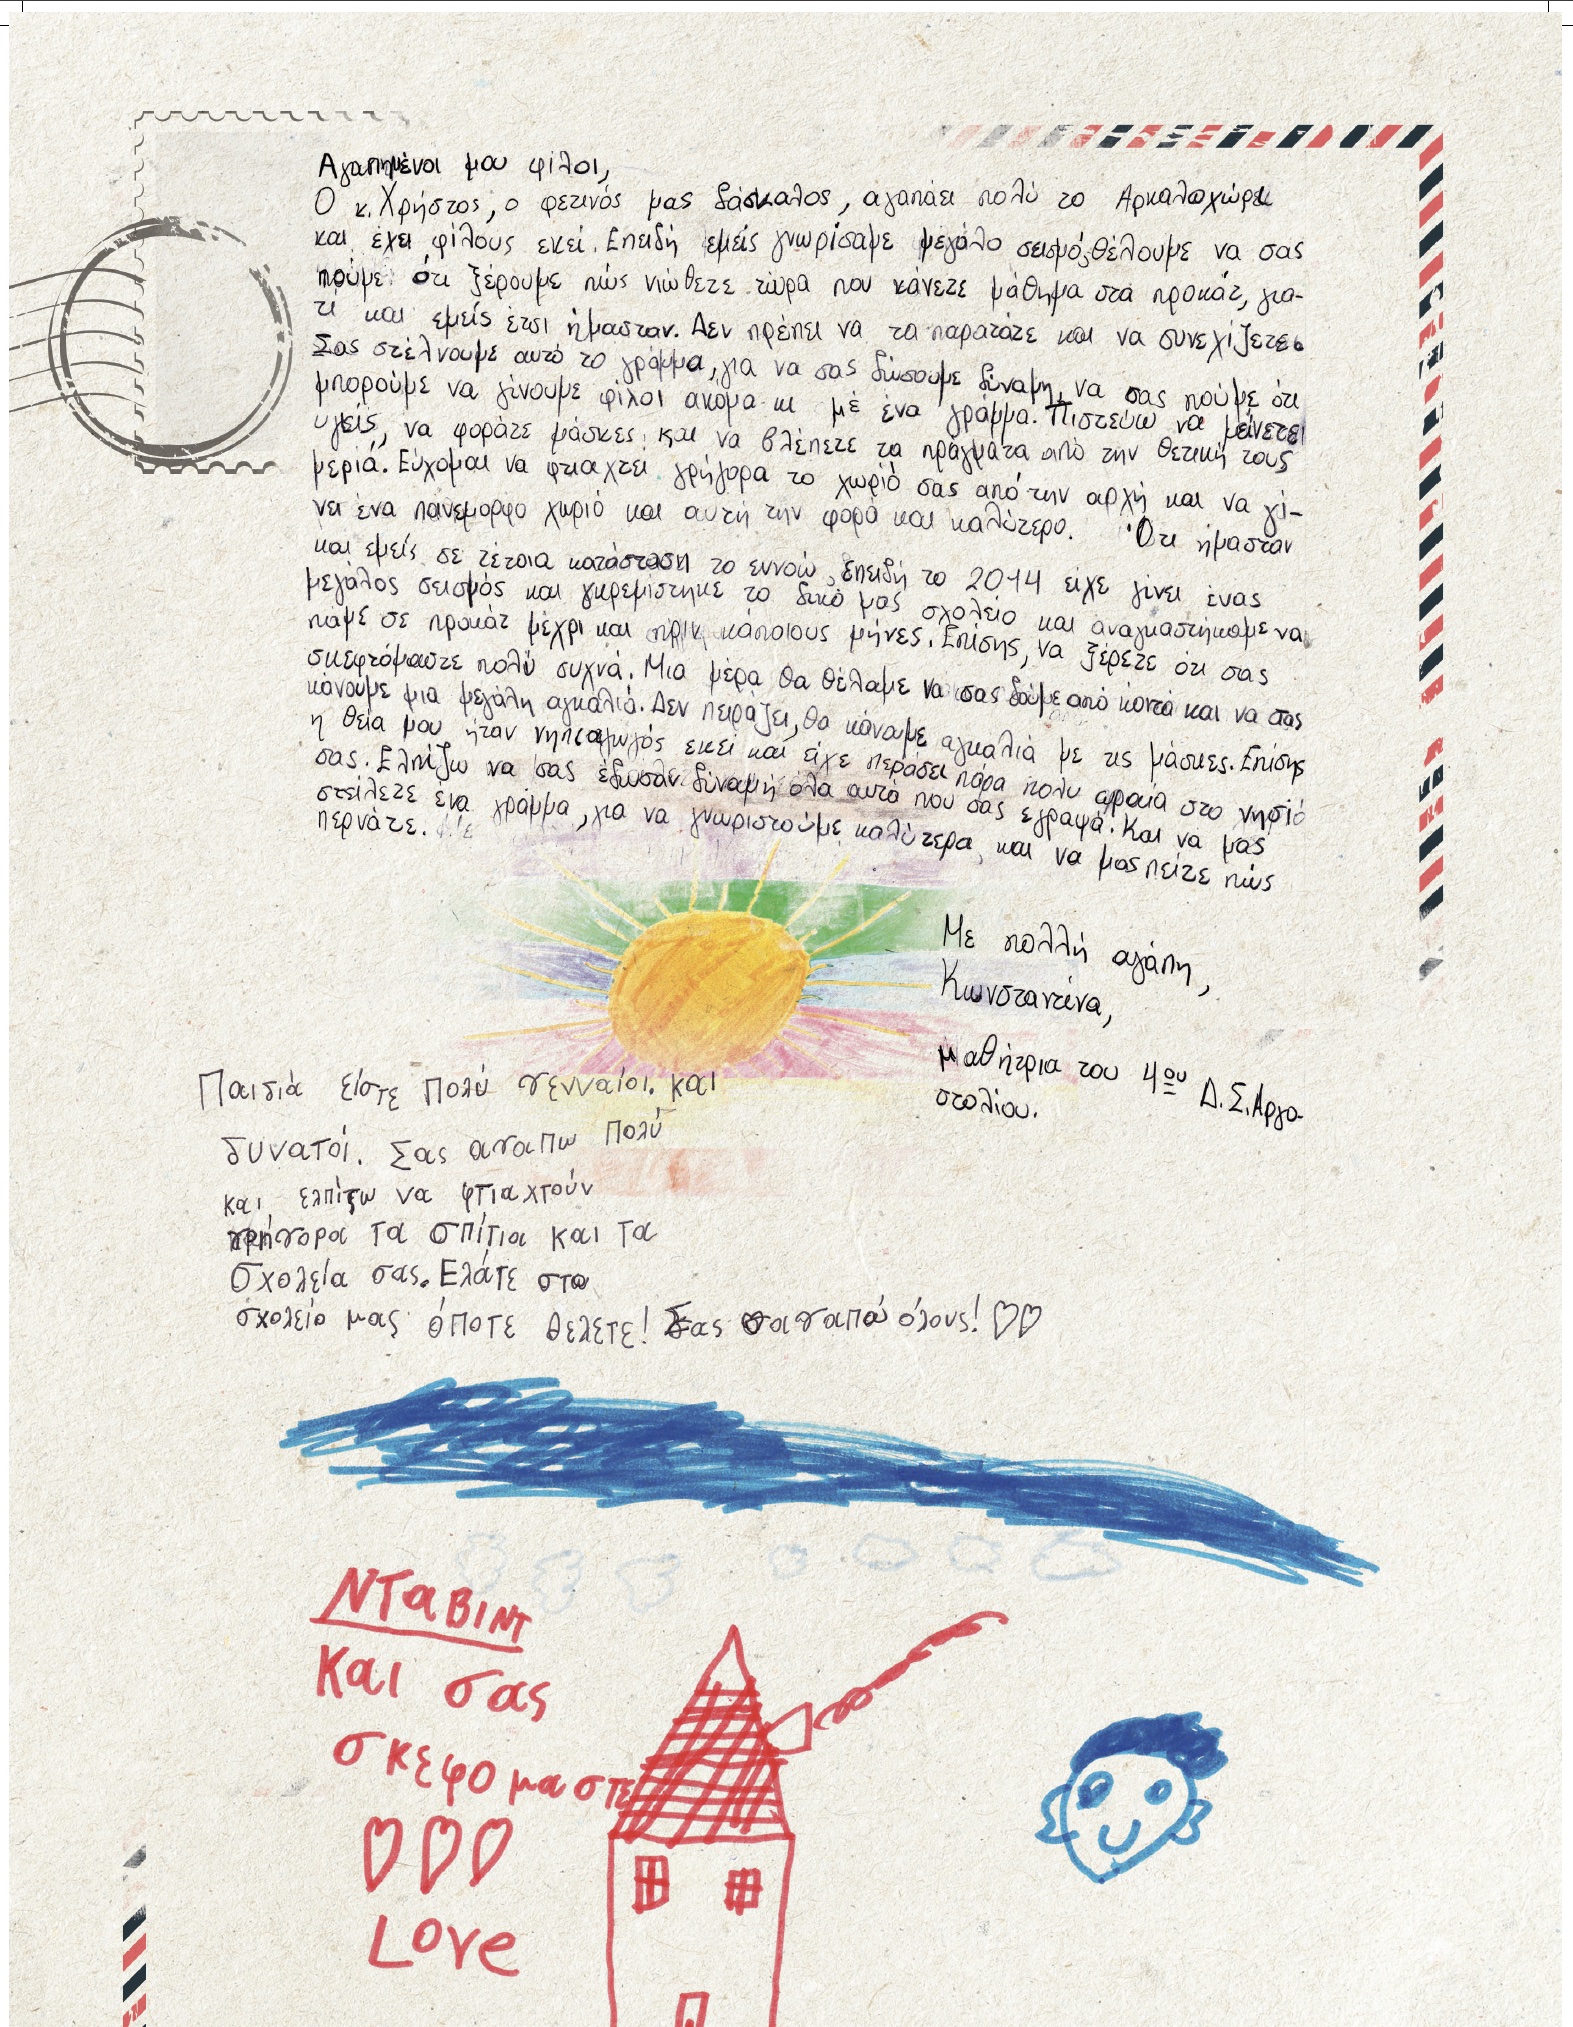 Αγαπημένοι μου φίλοι,
Ο κ. Χρήστος, ο φετινός μας δάσκαλος, αγαπάει πολύ το Αρκαλοχώρι
και έχει φίλους εκεί. Επειδή εμείς γνωρίσαμε μεγάλο σεισμό, θέλουμε να σας
πούμε ότι ξέρουμε πώς νιώθετε τώρα που κάνετε μάθημα στα προκάτ, για-
τί και εμείς έτσι ήμασταν. Δεν πρέπει να τα παρατάτε και να συνεχίζετε.
Σας στέλνουμε αυτό το γράμμα, για να σας δώσουμε δύναμη, να σας πούμε ότι
μπορούμε να γίνουμε φίλοι ακόμα κι με ένα γράμμα. Πιστεύω να μείνετε
υγείς, να φοράτε μάσκες και να βλέπετε τα πράγματα από την θετική τους
μεριά. Εύχομαι να φτιαχτεί γρήγορα το χωριό σας από την αρχή και να γί-
νει ένα πανέμορφο χωριό και αυτή την φορά και καλύτερο. Ότι ήμασταν
και εμείς σε τέτοια κατάσταση το εννοώ, επειδή το 2014 είχε γίνει ένας
μεγάλος σεισμός και γκρεμίστηκε το δικό μας σχολείο και αναγκαστήκαμε να
πάμε σε προκάτ μέχρι και πριν κάποιους μήνες. Επίσης, να ξέρετε ότι σας
σκεφτόμαστε πολύ συχνά. Μια μέρα θα θέλαμε να σας δούμε από κοντά και να σας
κάνουμε μια μεγάλη αγκαλιά. Δεν πειράζει, θα κάνουμε αγκαλιά με τις μάσκες. Επίσης
η θεία μου ήταν νηπιαγωγός εκεί και είχε περάσει πάρα πολυ ωραία στο νησιό
σας. Ελπίζω να σας έδωσαν δύναμη όλα αυτά που σας έγραψα. Και να μας
στείλετε ένα γράμμα, για να γνωριστούμε καλύτερα, και να μας πείτε πώς
περνάτε.
Με πολλή αγάπη,
Κωνσταντίνα,
μαθήτρια του 4ου Δ.Σ. Αργο-
στολίου.
Παιδιά είστε πολύ γενναίοι. και
δυνατοί. Σας αγαπω πολύ
και ελπίζω να φτιαχτούν
γρήγορα τα σπίτια και τα
Σχολεία σας. Ελάτε στο
σχολείο μας όποτε θελετε! Σας αγαπώ όλους!
ΝΤαΒΙΝΤ
Και σας
σκεφομαστε
Love